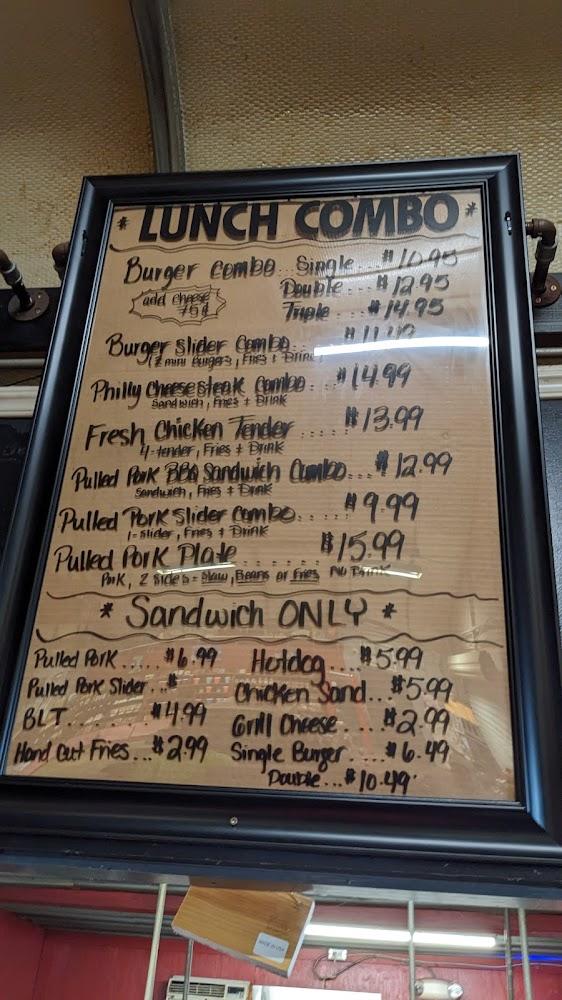 * LUNCH COMBO *
Burger Combo... Single... $10.95
Double... $12.95
add cheese 75¢
Triple... $14.95
Burger Slider Combo...
(2 mini Burgers, Fries + Drink
Philly Cheesesteak Combo... $14.99
Sandwich, Fries + Drink
Fresh Chicken Tender ..... $13.99
4-tender, Fries + Drink
Pulled Pork BBQ Sandwich Combo... $12.99
Sandwich, Fries + Drink
Pulled Pork Slider Combo..... $9.99
1-Slider, Fries + Drink
Pulled Pork Plate ..... $15.99
Pork, 2 Sides = Slaw, Beans or Fries NO Drink
* Sandwich ONLY *
Pulled Pork..... $6.99 Hotdog.... $5.99
Pulled Pork Slider...$ Chicken Sand... $5.99
BLT....... $4.99 Grill Cheese.... $2.99
Hand Cut Fries... $2.99 Single Burger.... $6.49
Double... $10.49